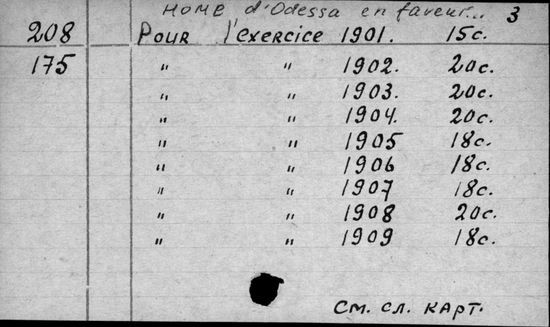 номе d'Odessa en faveur... 3
208 Pour l'exercice 1901. 15c.
175 " " 1902. 20c.
" " 1903. 20c.
" " 1904. 20c.
" " 1905 18c.
" " 1906 18c.
" " 1907 18c.
" " 1908 20c.
" " 1909 18c.
См. сл. карт.